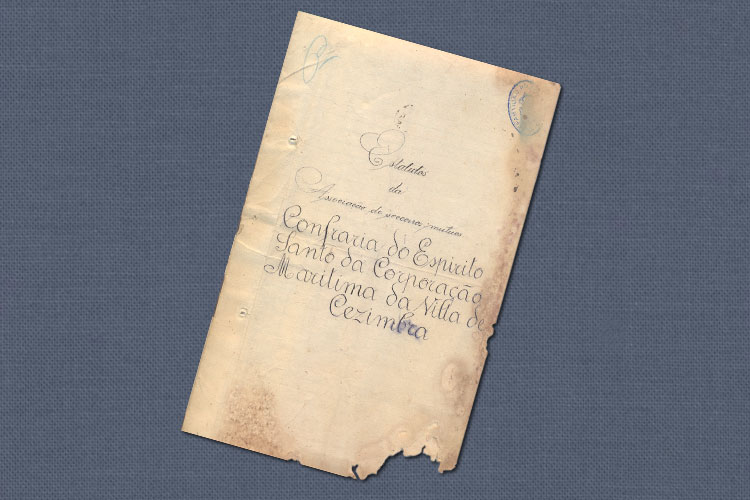 Estatutos
da
Associação de soccorros mutuos
Confraria do Espirito
Santo da Corporação
Maritima da Villa de
Cezimbra